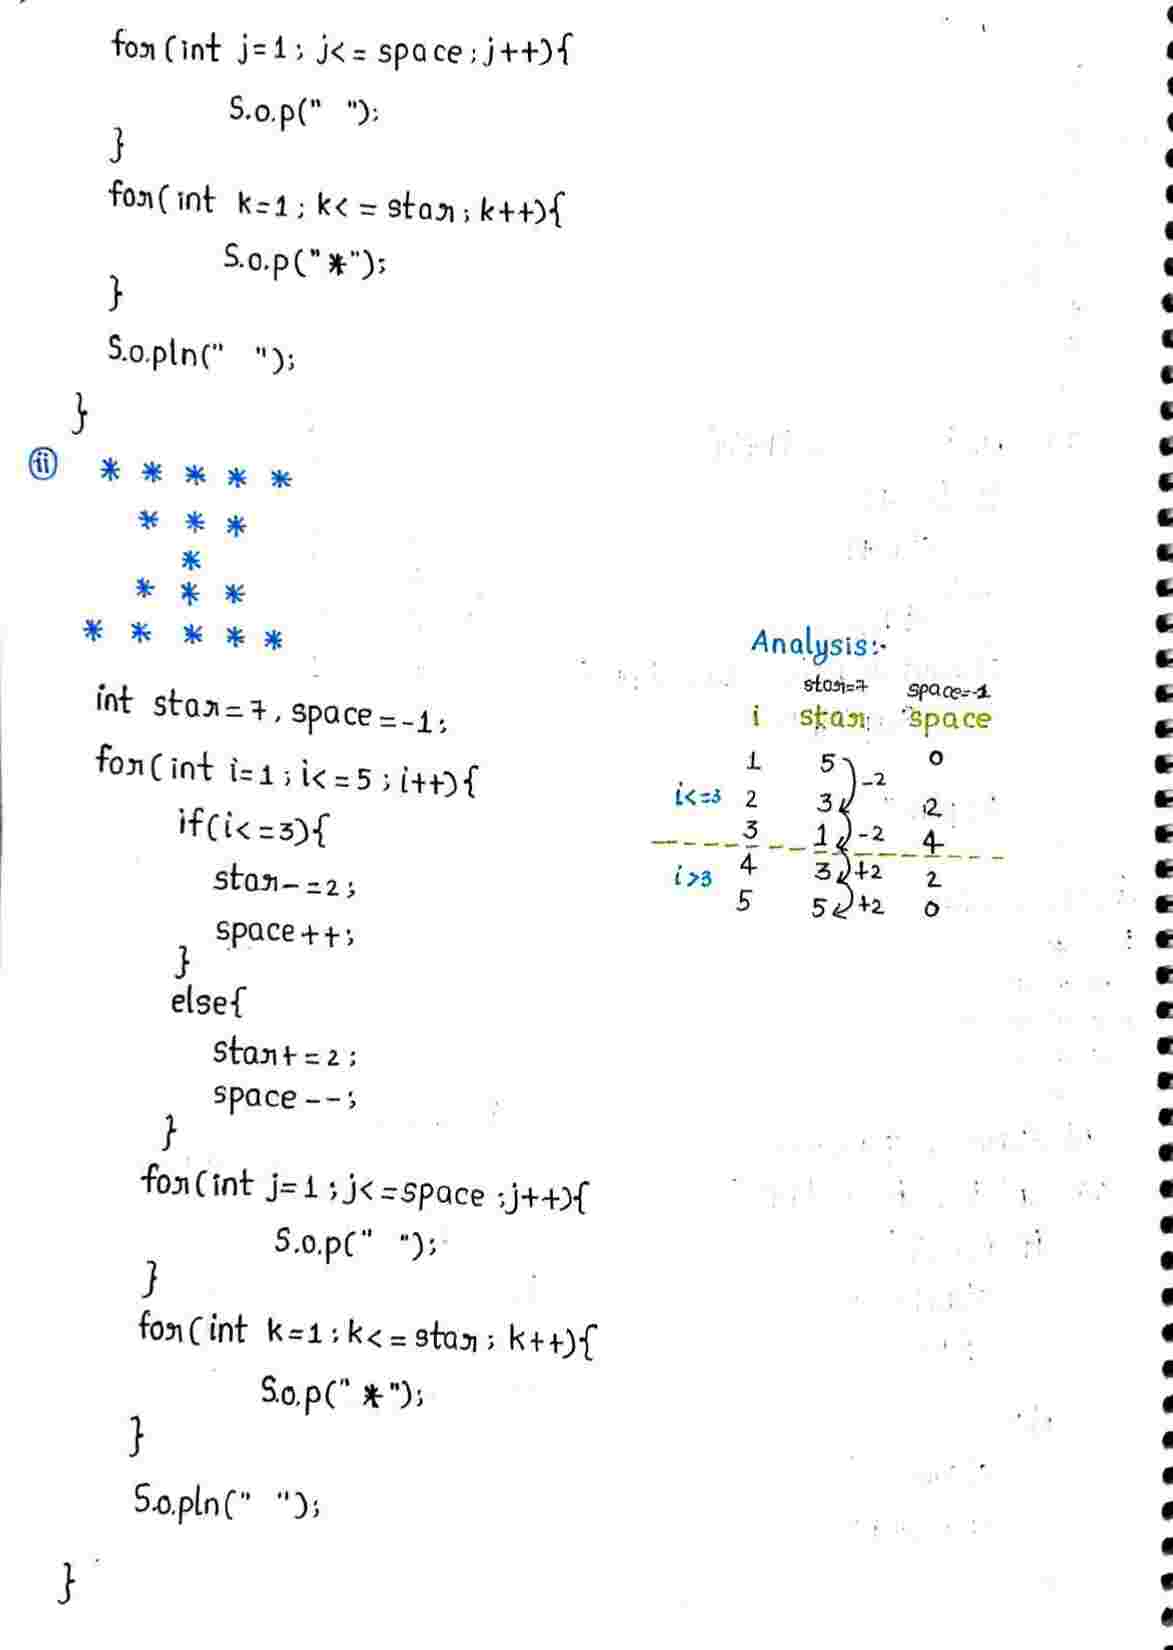 for(int j=1; j<= space; j++){
S.o.p(" ");
}
for(int k=1; k<= star; k++){
S.o.p("*");
}
S.o.pln(" ");
}
(ii) * * * * *
* * *
*
* * *
* * * * *
int star=7, space=-1;
for(int i=1; i<=5; i++){
if(i<=3){
star-=2;
space++;
}
else{
star+=2;
space--;
}
for(int j=1; j<=space; j++){
S.o.p(" ");
}
for(int k=1; k<=star; k++){
S.o.p("*");
}
S.o.pln(" ");
}
Analysis:-
star=7 space=-1
i star space
1 5 0
-2
i<=3 2 3 2
3 1 -2 4
i>3 4 3 +2 2
5 5 +2 0